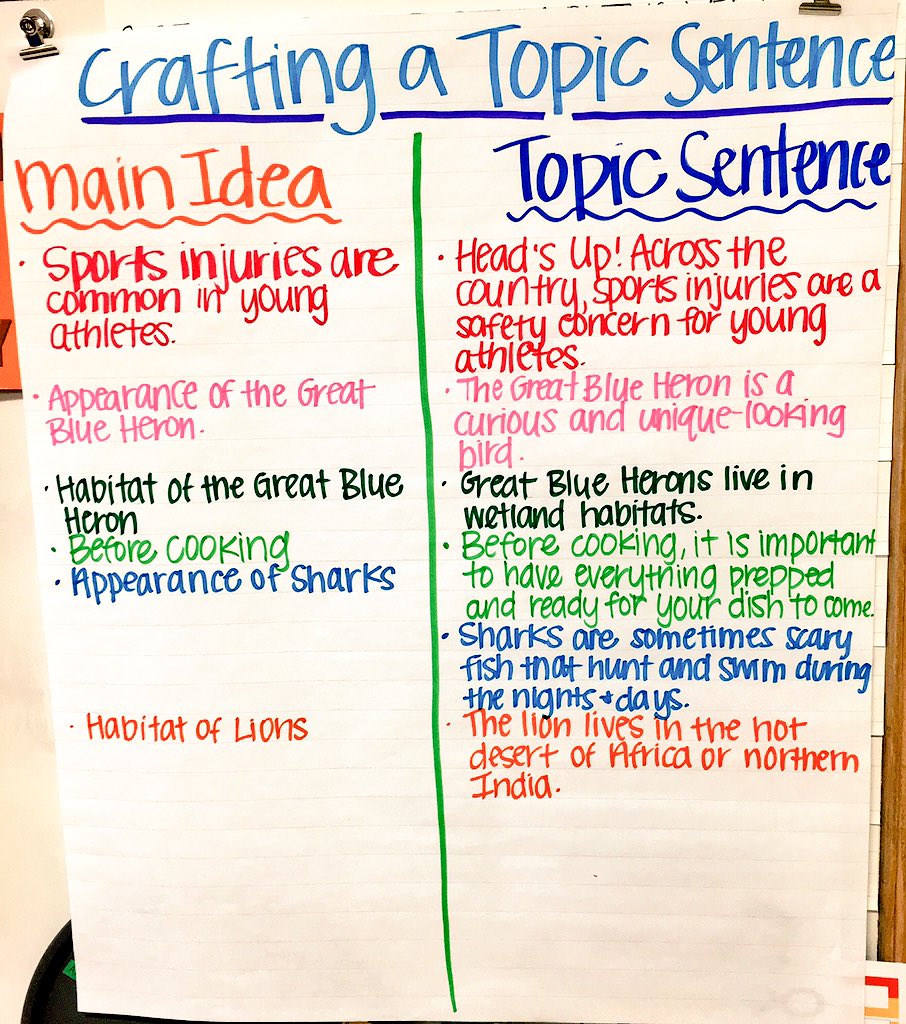 Crafting a Topic Sentence
Main Idea
• Sports injuries are
common in young
athletes.
• Appearance of the Great
Blue Heron.
• Habitat of the Great Blue
Heron
• Before cooking
• Appearance of Sharks
• Habitat of Lions
Topic Sentence
• Head's Up! Across the
country, sports injuries are a
safety concern for young
athletes.
• The Great Blue Heron is a
curious and unique-looking
bird.
• Great Blue Herons live in
wetland habitats.
• Before cooking, it is important
to have everything prepped
and ready for your dish to come.
• Sharks are sometimes scary
fish that hunt and swim during
the nights + days.
• The lion lives in the hot
desert of Africa or northern
India.